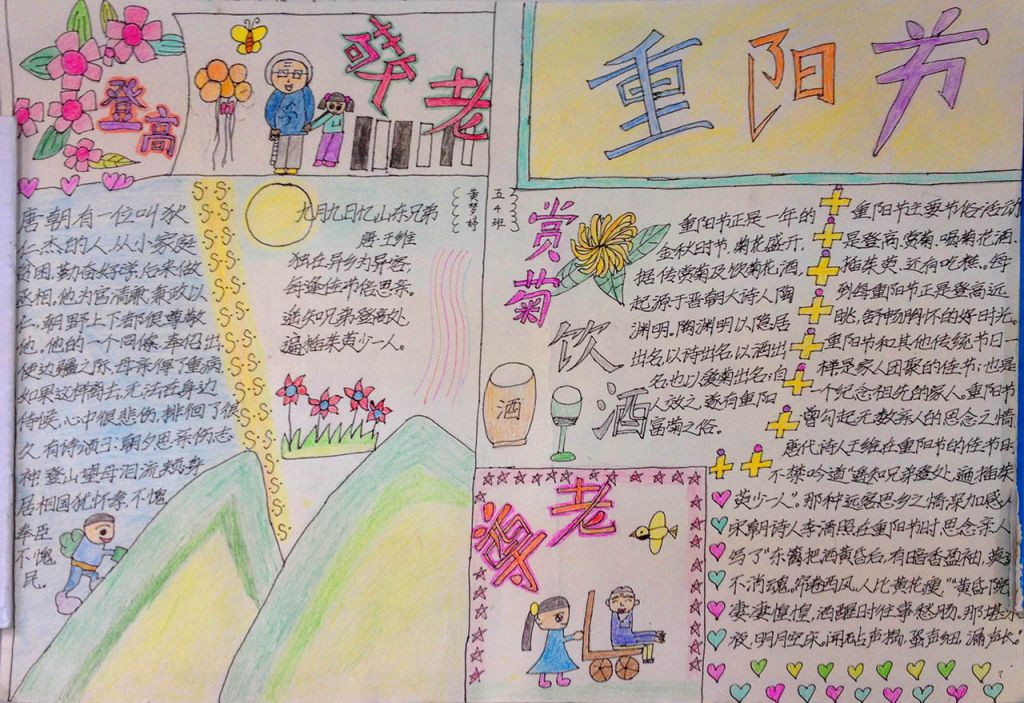 重阳节
登高
敬老
唐朝有一位叫狄
仁杰的人,从小家庭
贫困,勤奋好学,后来做
丞相,他为官清廉,兼政以
仁,朝野上下都很尊敬
他,他的一个同僚,奉召出
使边疆之际,母亲得了重病,
如果这样离去,无法在身边
侍候,心中很悲伤,排徊了很
久.有诗颂曰:朝夕思亲伤志
神,登山望母泪流频,身
居相国犹怀孝,不愧
奉臣
不愧
民。
九月九日忆山东兄弟
唐:王维
独在异乡为异客,
每逢佳节倍思亲。
遥知兄弟登高处,
遍插茱萸少一人。
五4班
黄梦婷
赏菊
重阳节正是一年的
金秋时节,菊花盛开,
据传赏菊及饮菊花酒,
起源于晋朝大诗人陶
渊明,陶渊明以隐居
出名,以诗出名,以酒出
名,也以爱菊出名,后
人效之,遂有重阳
富菊之俗。
饮酒
酒
尊老
重阳节主要节俗活动
是登高,赏菊,喝菊花酒,
插茱萸,还有吃糕,每
到每重阳节正是登高远
眺,舒畅胸怀的好时光。
重阳节和其他传统节日一
样是家人团聚的佳节;也是
一个纪念祖先的家人。重阳节
曾勾起无数亲人的思念之情
唐代诗人王维在重阳节的佳节时,
不禁吟道"遥知兄弟登处,遍插茱
萸少一人"。那种远客思乡之情深加感
宋朝诗人李清照在重阳节时,思念亲人
写了"东篱把酒黄昏后,有暗香盈袖,莫道
不消魂。帘卷西风,人比黄花瘦。"黄昏院
凄凄惶惶,酒醒时往事愁肠,那堪永
夜,明月空床。闻砧声捣,蛩声细,漏声长。"